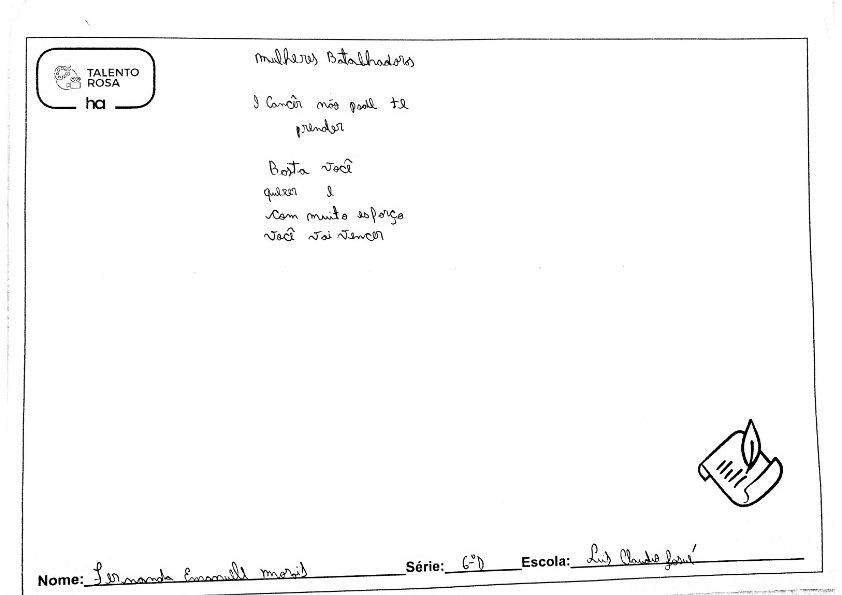 TALENTO
ROSA
ha
Mulheres Batalhadoras
O Cancêr não pode te
prender
Basta você
querer e
com muito esforço
você vai vencer
Nome: Fernanda Emanuelle Morais Série: 6ºD Escola: Luis Claudio Josué